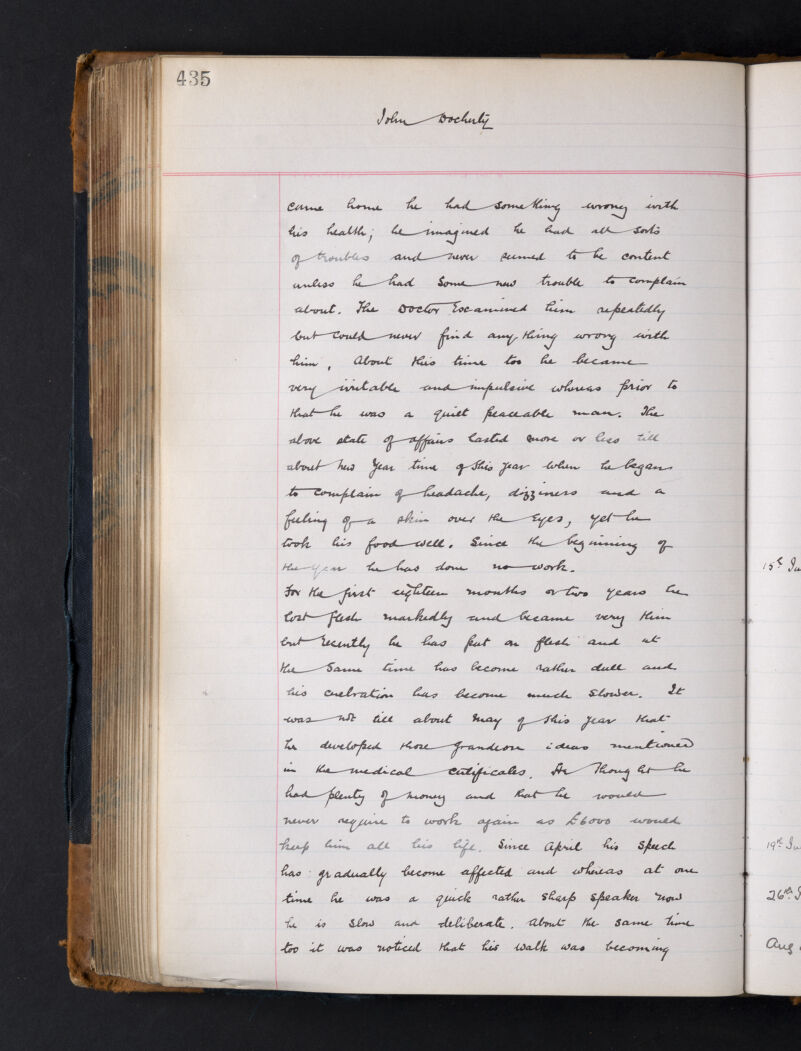 435
John Docherty
came home he had something wrong with
his health; he imagined he had all sorts
of troubles and never seemed to be content
unless he had some new trouble to complain
about. The Doctor Examined him repeatedly
but could never find any thing wrong with
him, About this time too he became
very irritable and impulsive whereas prior to
that he was a quiet peaceable man. The
above state of affairs lasted more or less till
about New Year time of this year when he began
to complain of headache, dizziness and a
feeling of a skin over the Eyes, yet he
took his food well. Since the beginning of
the year he has done no work.
For the first eighteen months or two years he
lost flesh markedly and became very thin
but recently he has put on flesh and at
the same time has become rather dull and
his cerebration has become much slower. It
was not till about May of this year that
he developed those grandiose ideas mentioned
in the medical certificates. He thought he
had plenty of money and that he would
never require to work again as £6000 would
keep him all his life. Since April his speech
has gradually become affected and whereas at one
time he was a quick rather sharp speaker now
he is slow and deliberate. About the same time
too it was noticed that his walk was becoming
15th
19th
26th
Aug